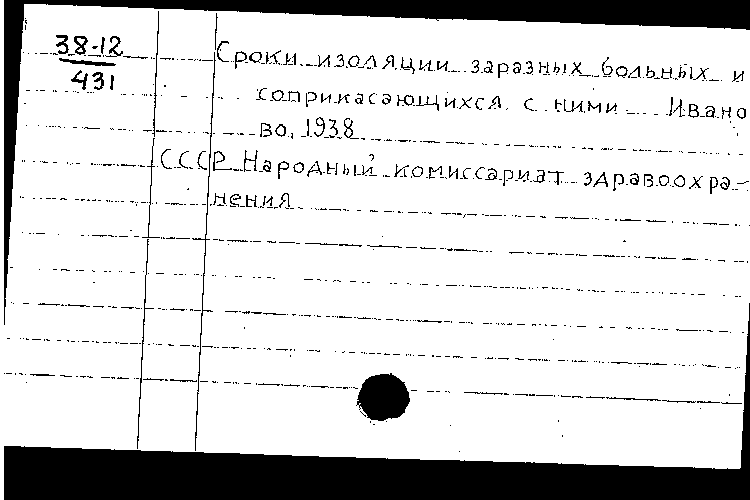 38-12
431
Сроки изоляции заразных больных и
соприкасающихся с ними Ивано
во, 1938
СССР Народный комиссариат здравоохра-
нения